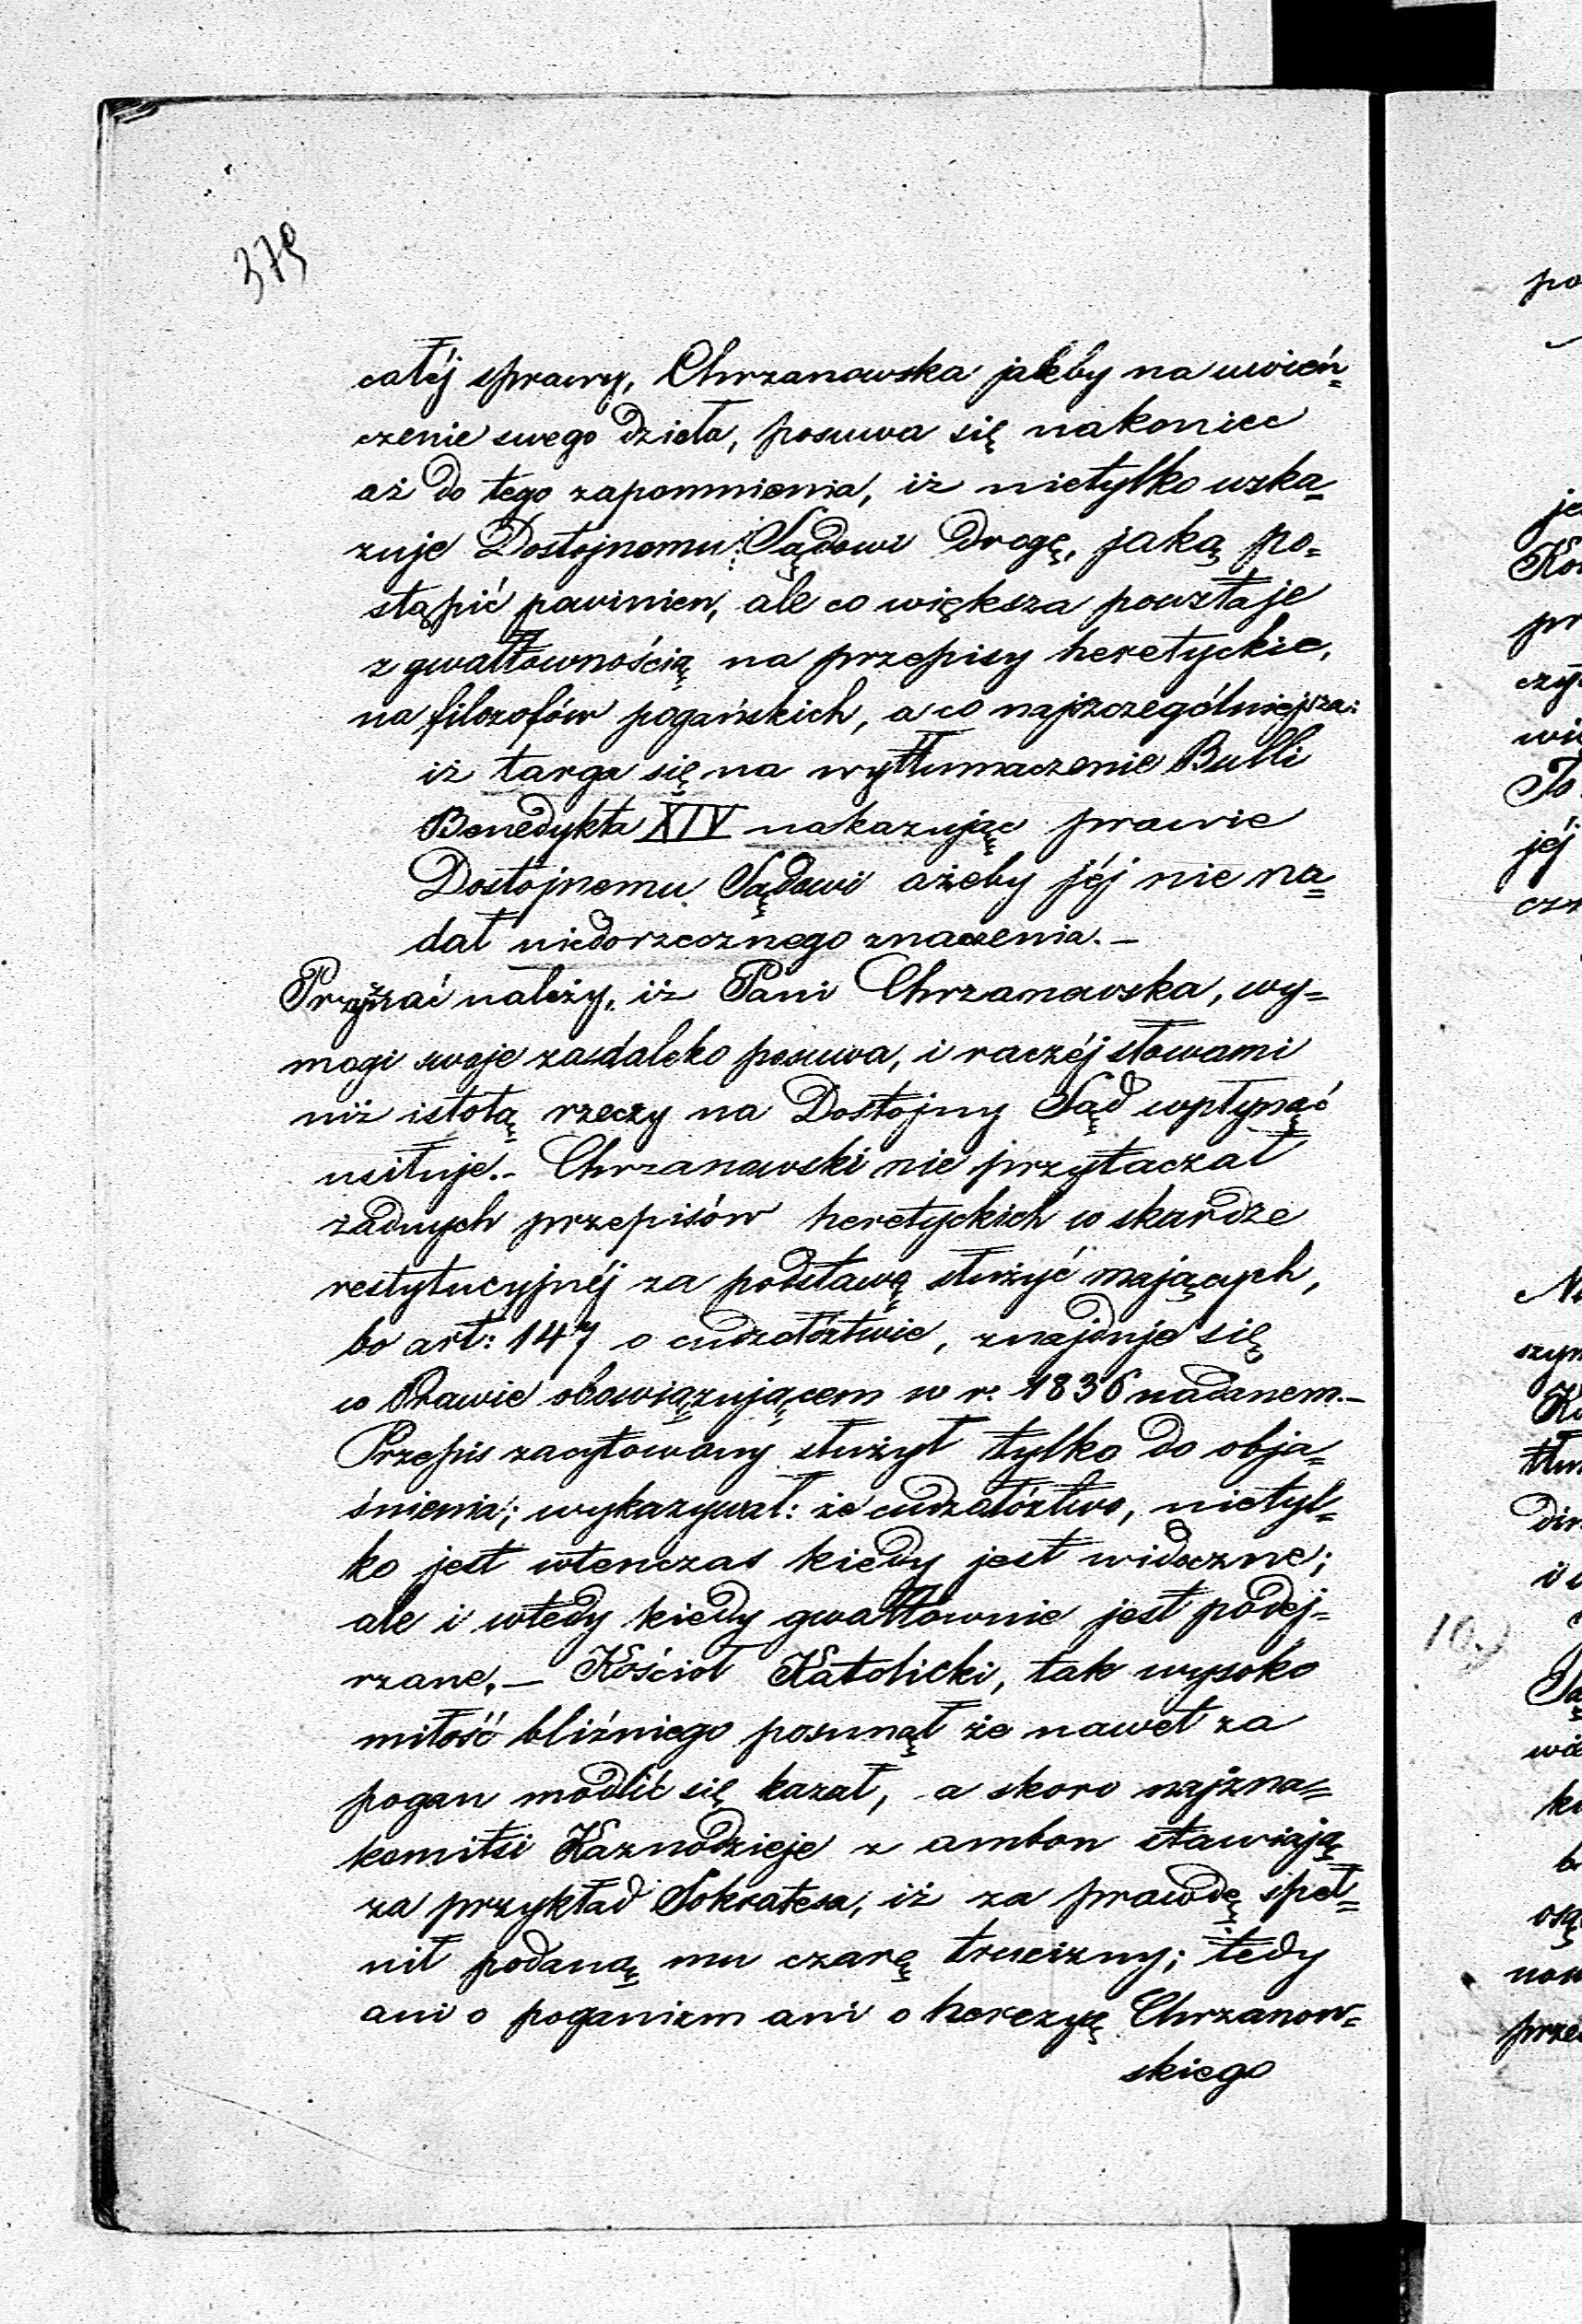 379
całéj sprawy, Chrzanowska jakby na uwień=
czenie swego dzieła, posuwa się nakoniec
aż do tego zapomnienia, iż nietylko wska=
zuje Dostojnemu Sądowi drogę, jaką po=
stąpić powinien, ale co większa powstaje
z gwałtownością na przepisy heretyckie,
na filozofów pogańskich, a co najszczególniejsza:
iż targa się na wytłumaczenie Bulli
Benedykta XIV nakazując prawie
Dostojnemu Sądowi ażeby jéj nie na=
dał niedorzecznego znaczenia.—
Przyznać należy, iż Pani Chrzanowska, wy=
mogi swoje zadaleko posuwa, i raczéj słowami
niż istotą rzeczy na Dostojny Sąd wpłynąć
usiłuje.- Chrzanowski nie przytaczał
żadnych przepisów heretyckich w skardze
restytucyjnéj za podstawę służyć mających,
bo art: 147 o cudzołóztwie, znajduje się
w Prawie obowiązującem w r. 1836 nadanem.—
Przepis zacytowany służył tylko do obja=
śnienia; wykazywał: że cudzołóztwo, nietyl=
ko jest wtenczas kiedy jest widoczne;
ale i wtedy kiedy gwałtownie jest podej=
rzane.— Kościoł Katolicki, tak wysoko
miłość bliźniego posunął że nawet za
pogan modlić się kazał, a skoro najzna=
komitsi Kaznodzieje z ambon stawiają
za przykład Sokratesa, iż za prawdę speł=
nił podaną mu czarę trucizny; tedy
ani o poganizm ani o herezyę Chrzanow=
skiego
po
je
pr
wi
To
jéj
10.)